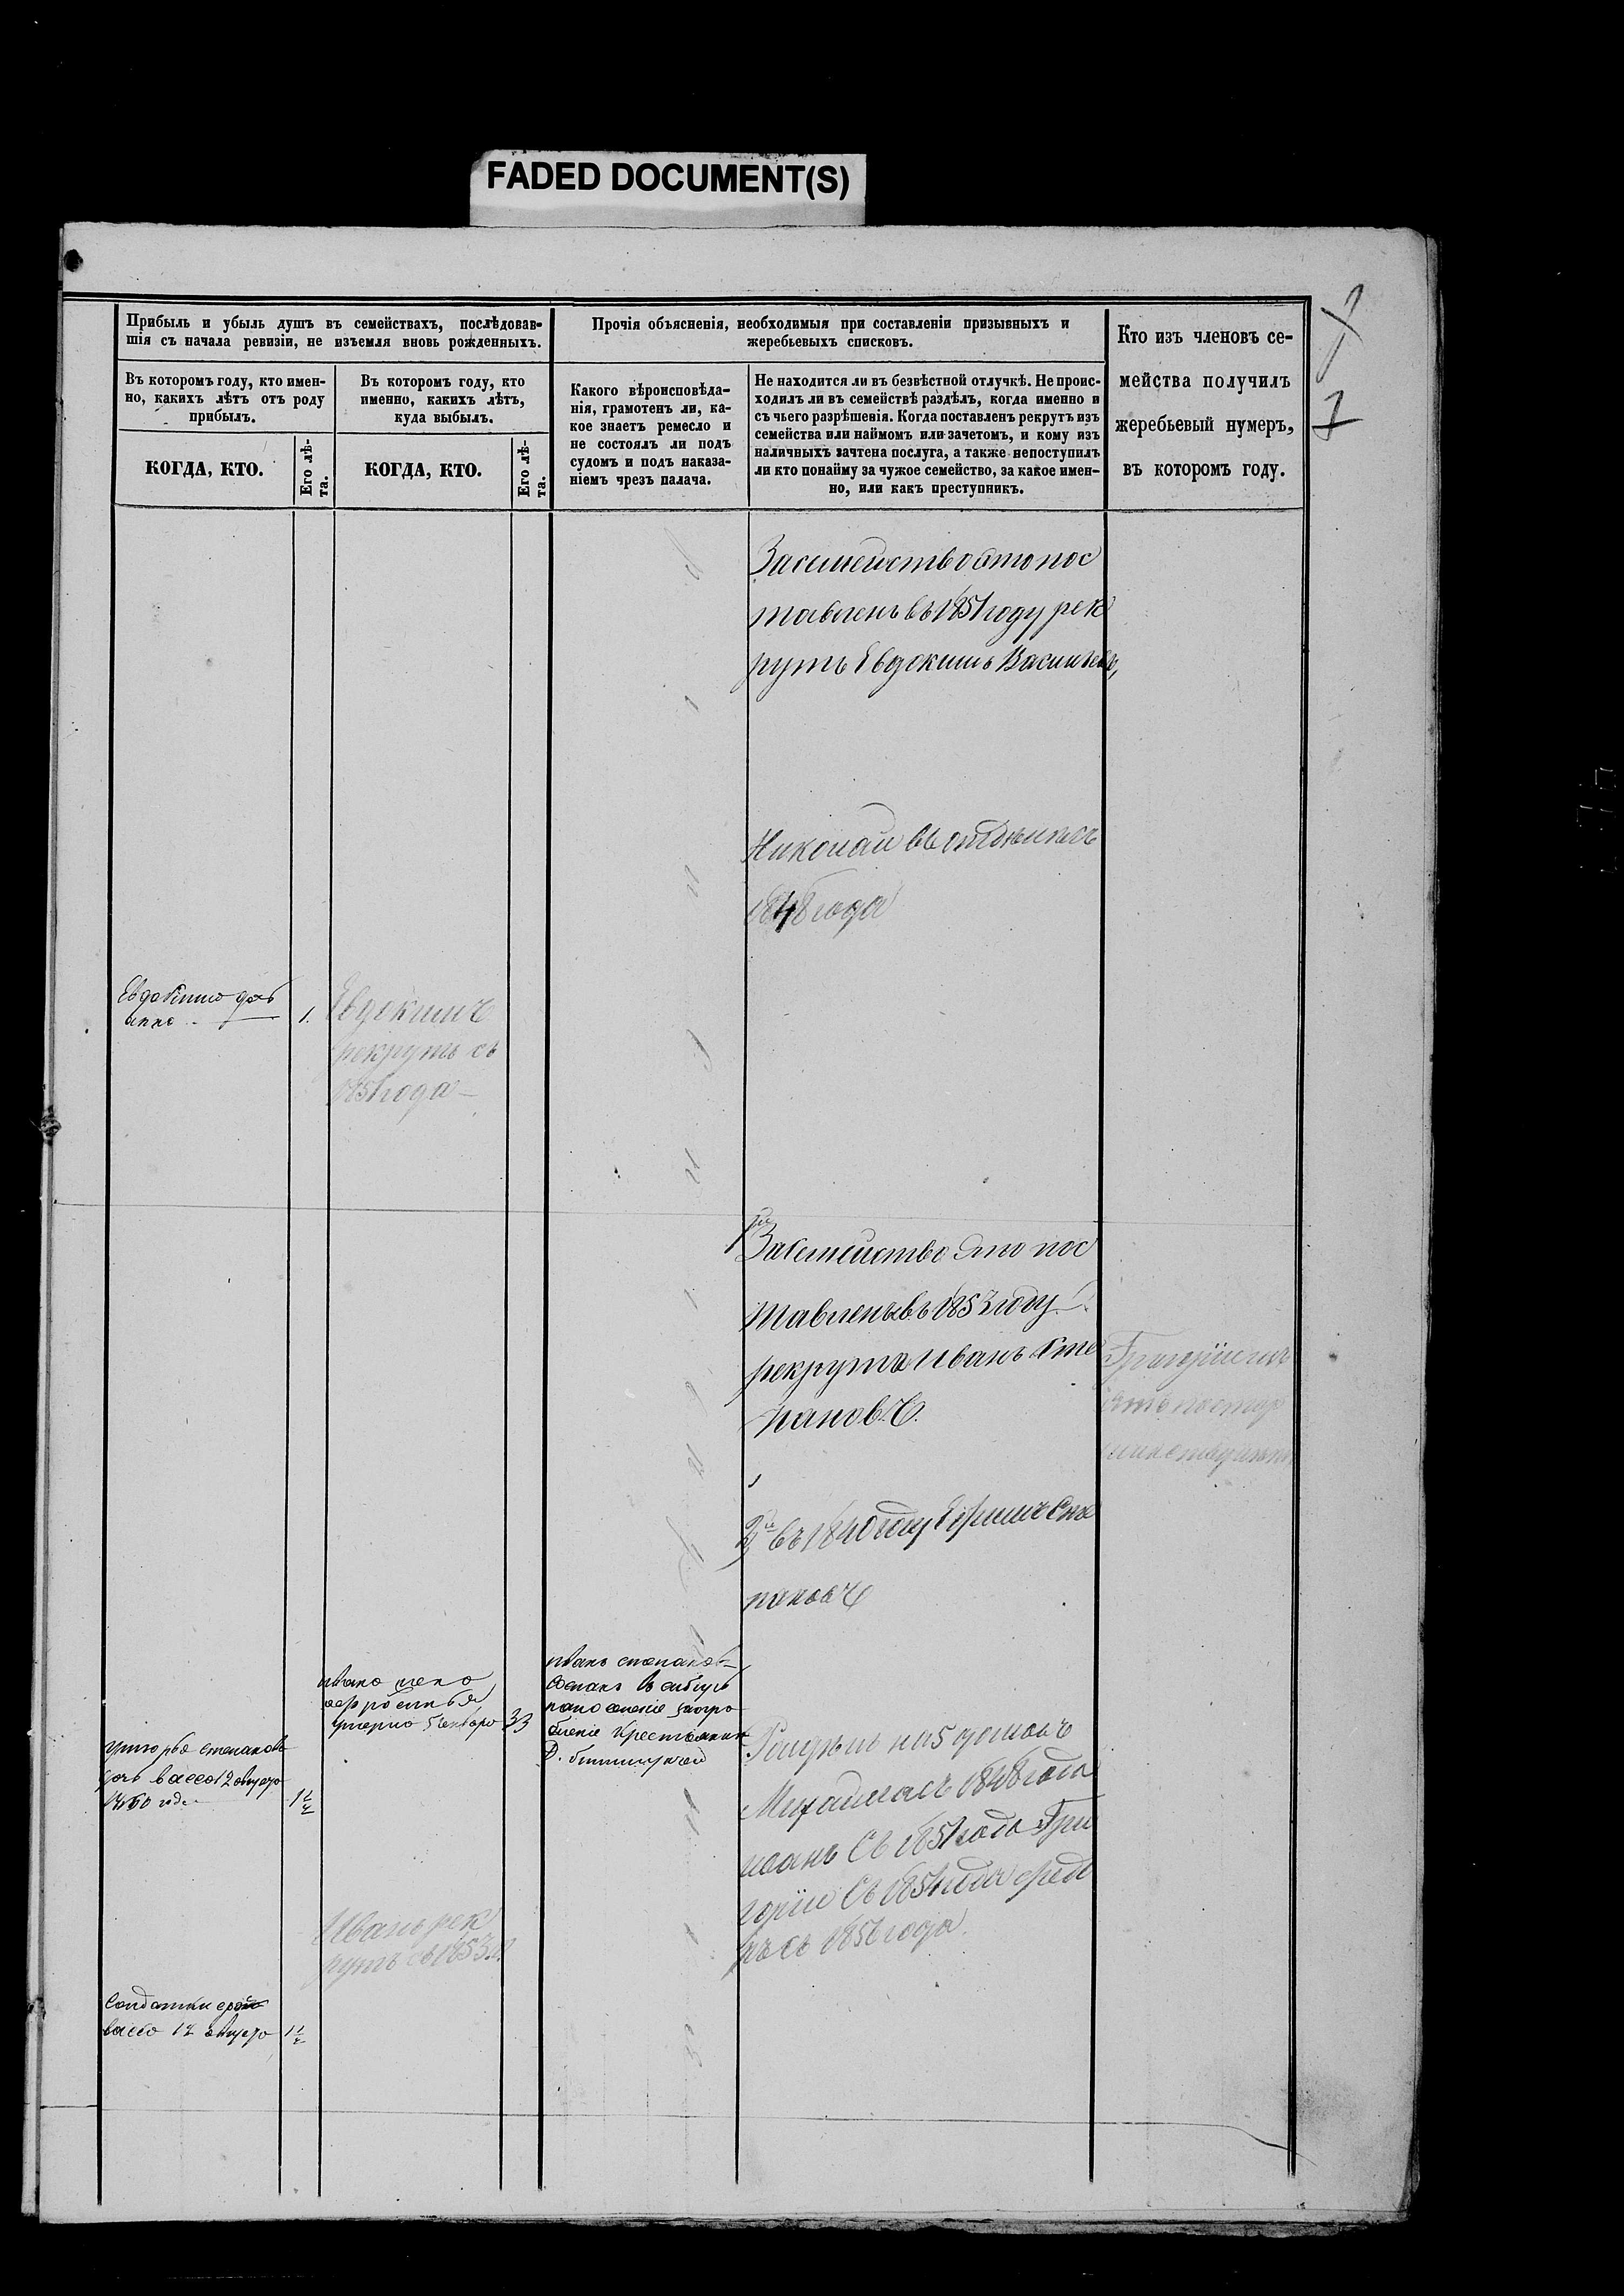 FADED DOCUMENT(S)
Прибыль и убыль душъ въ семействахъ, послѣдовав-
шія съ начала ревизіи, не изъемля вновь рожденныхъ.
Прочія объясненія, необходимыя при составленіи призывныхъ и
жеребьевыхъ списковъ.
Кто изъ членовъ се-
мейства получилъ
жеребьевый нумеръ,
въ которомъ году.
Въ которомъ году, кто имен-
но, какихъ лѣтъ отъ роду
прибылъ.
Въ которомъ году, кто
именно, какихъ лѣтъ,
куда выбылъ.
Какого вѣроисповѣда-
нія, грамотенъ ли, ка-
кое знаетъ ремесло и
не состоялъ ли подъ
судомъ и подъ наказа-
ніемъ чрезъ палача.
Не находится ли въ безвѣстной отлучкѣ. Не проис-
ходилъ ли въ семействѣ раздѣлъ, когда именно и
съ чьего разрѣшенія. Когда поставленъ рекрутъ изъ
семейства или наймомъ или зачетомъ, и кому изъ
наличныхъ зачтена послуга, а также непоступилъ
ли кто понайму за чужое семейство, за какое имен-
но, или какъ преступникъ.
КОГДА, КТО.
Его лѣ-
та.
КОГДА, КТО.
Его лѣ-
та.
7
За семейство это пос
тавленъ въ 1851 году рек
рутъ Евдокимъ Васильевъ,
Николай въ отдѣлѣ съ
1848 года
Евдокима дочь
анна 1.
Евдокимъ
рекрутъ съ
1851 года
За семейство это пос
тавлены въ 1853 году
рекрута Иванъ Сте
пановъ.
въ 1840 году Ефимъ Сте
пановъ
ивана жена
умерла 5 генваро 33
иванъ степановъ
крестьянина
григорья степанова
дочь васса 12 августа
1860 года 1 1/2
на 5 домовъ
Михайла съ 1848 года
иванъ Съ 1851 года Гри
горій Съ 1854 года
съ 1856 года
Иванъ рек
рутъ съ 1853 г.
Солдатки
васса 12 августа 1 1/2